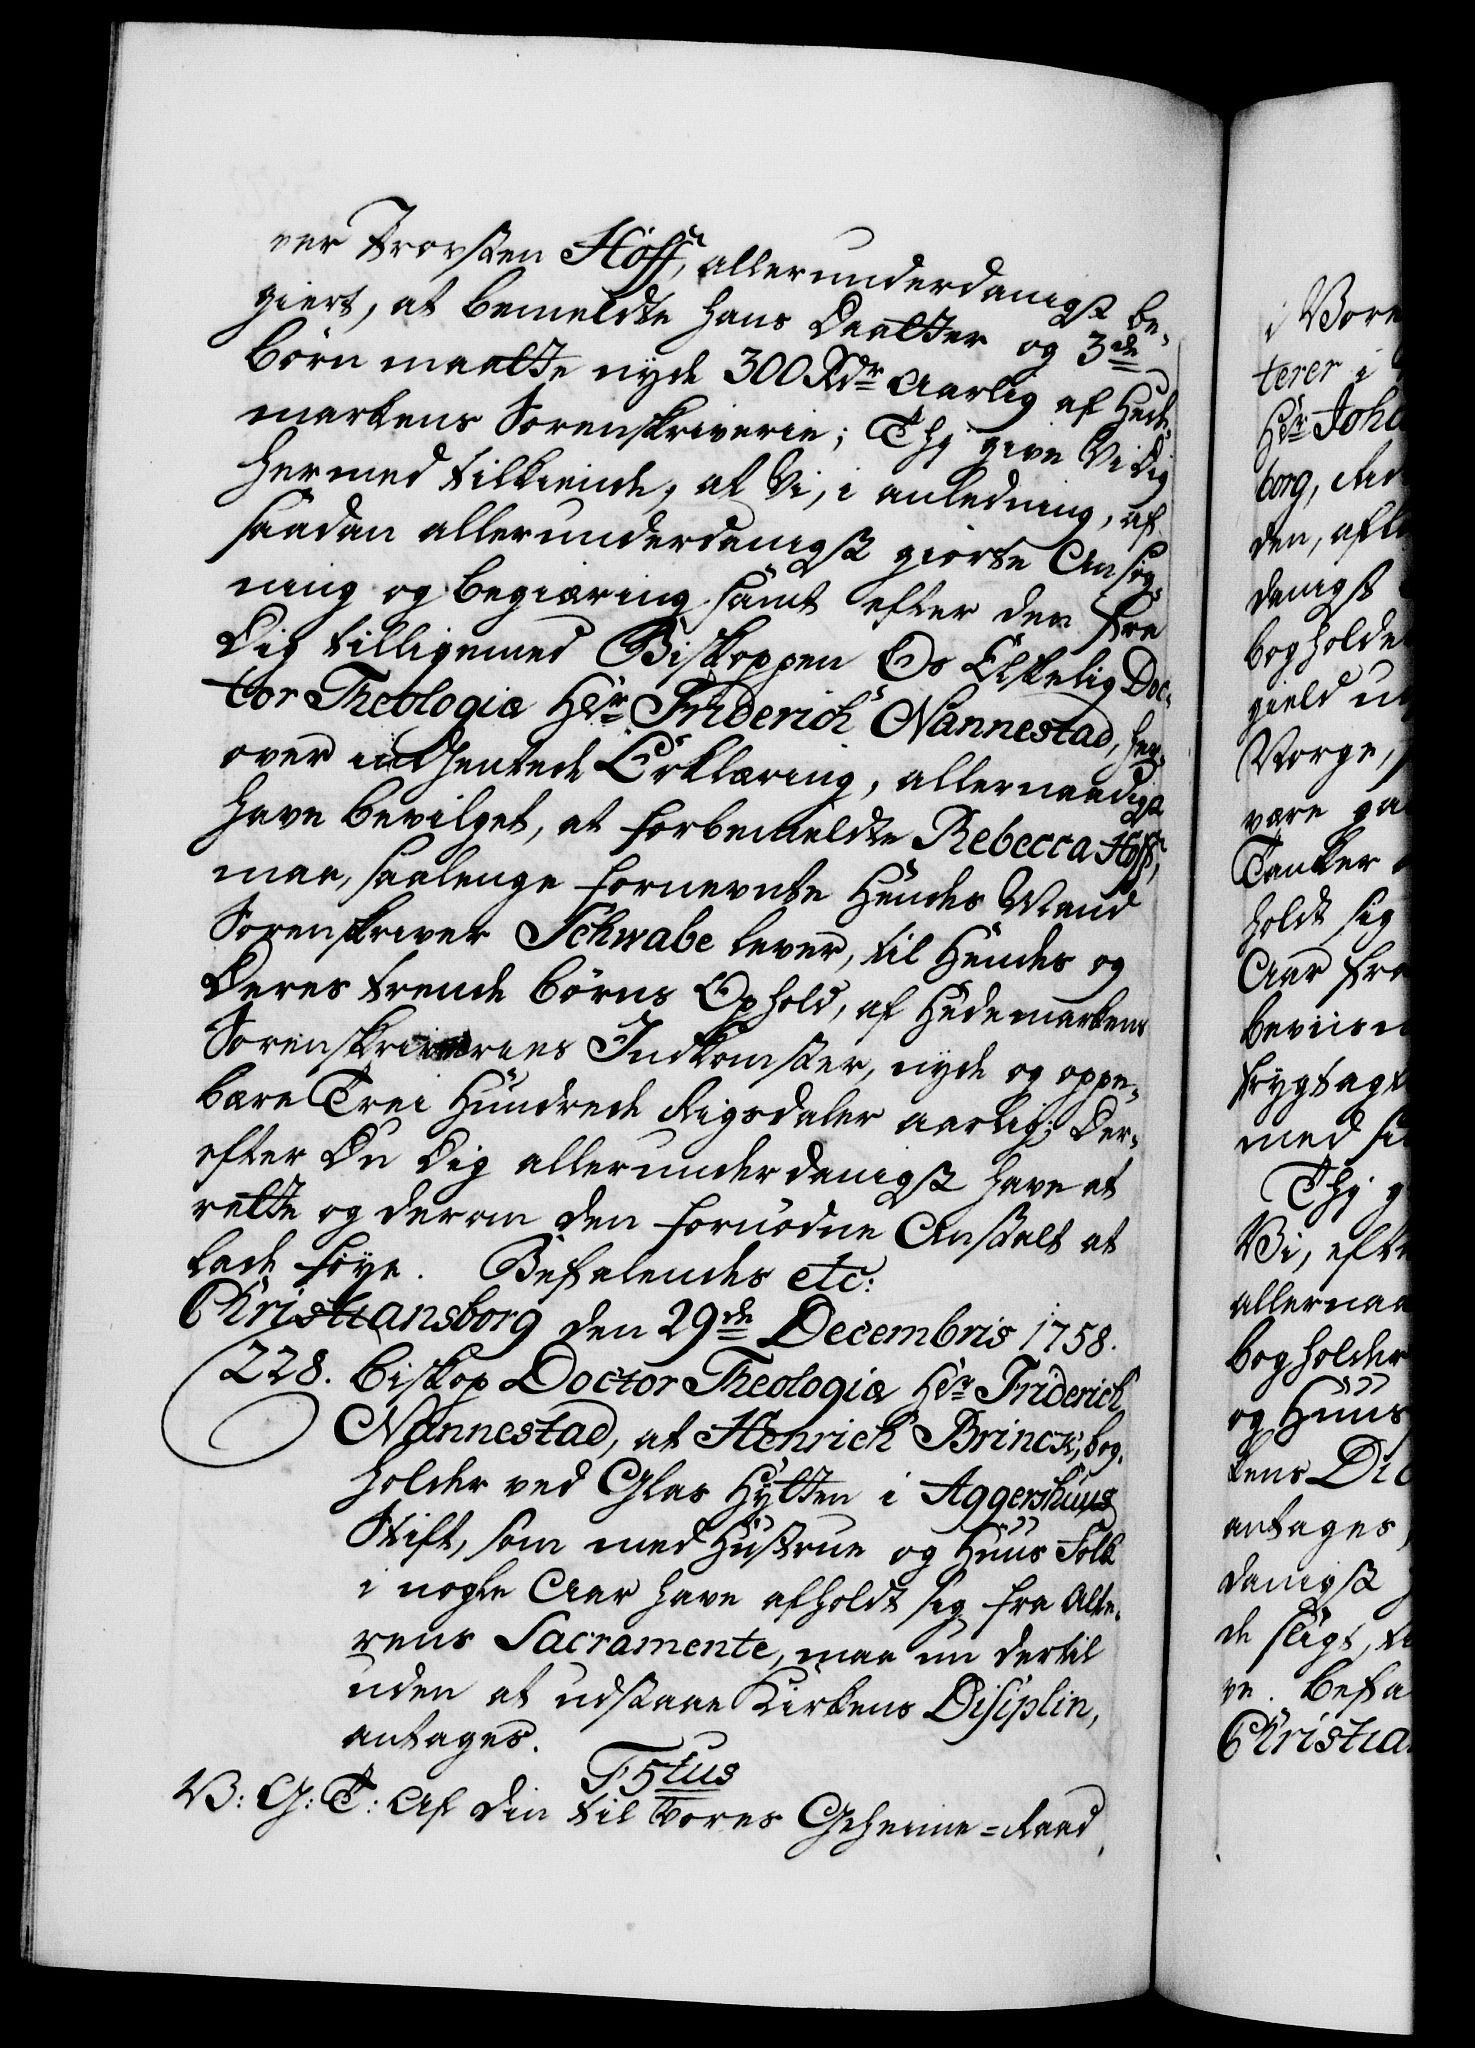 ver Trorsten Hoff, allerunderdanigst be-
giert, at bemeldte hans Daatter og 3de
børn maatte nyde 300 Rdr aarlig af Hede-
markens Sorenskriverie; Thi give Vi Dig
hermed tilkiende, at Vi, i anledning, af
saadan allerunderdanigst giorte Ansøg-
ning og begiæring samt efter den fra
Dig tilligemed Biskoppen Os Elskelig Doc-
tor Theologiæ Hr. Friderich Nannestad, her-
over indhentede Erklæring, allernaadigst
have bevilget, at forbemeldte Rebecca Hoff,
maa, saalenge fornevnte Hendes Mand
Sorenskriver Schwabe lever, til Hendes og
Deres trende børns Ophold, af Hedemarkens
Sorenskriveries Indkomster, nyde og oppe-
bære Trei Hundrede Rigsdaler aarlig; Der-
efter Du Dig allerunderdanigst have at
rette og derom den fornødne Anstalt at
lade føye. Befalendes etc:
Christiansborg den 29de Decembris 1758.
228. Biskop Doctor Theologiæ Hr. Friderich
Nannestad, at Henrich Brinck, bog-
holder ved Glas Hytten i Aggershuus
Stift, som med Hustrue og Huus Folk
i nogle Aar have afholdt sig fra Alte-
rens Sacramente, maa nu dertil
uden at udstaae Kirkens Disiplin,
antages.
F5tus
V: G: T: Af din til Vores Geheime-Raad
i Vore
terer i
Hr. Joha
borg,
den,
danigst
bogholde
gield
Norge,
være
Tanker
holdt sig
Aar fra
beviis
frygtagt
med
Thi g
Vi, efte
allernaa
bogholder
og Huus
kens Di
antages,
danigst
de sligt,
ve. Befa
Christia